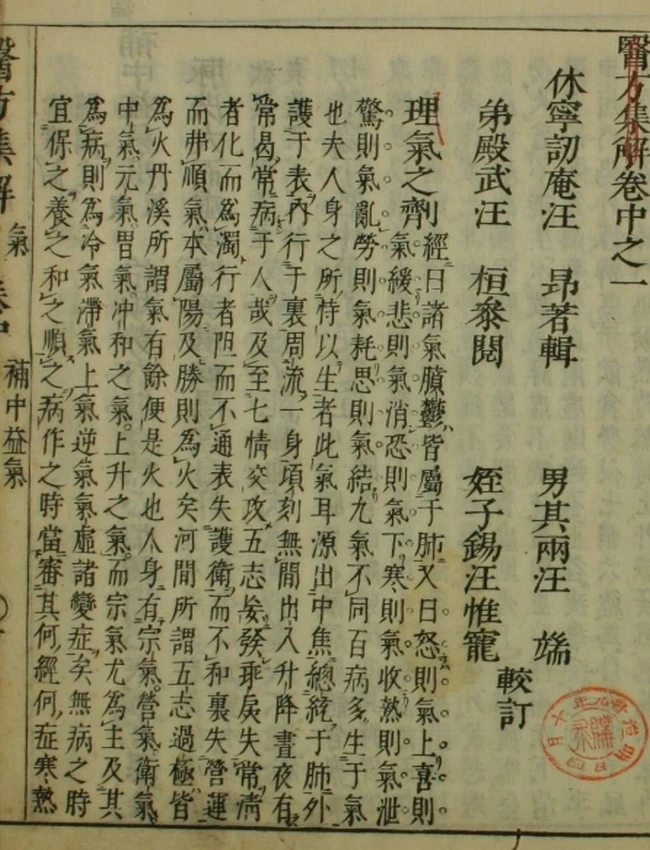 醫方集解卷中之一
休寧訒庵汪 昂若輯 男其兩汪 端
弟殿武汪 桓參閱 姪子錫汪惟寵
較訂
理氣之劑經曰諸氣膹鬱皆屬于肺又曰怒則氣上喜則
氣緩悲則氣消恐則氣下寒則氣收熱則氣泄
驚則氣亂勞則氣耗思則氣結九氣不同百病多生于氣
也夫人身之所恃以生者此氣耳源出中焦總統于肺外
護于表內行于裏周流一身頃刻無間出入升降晝夜有
常曷常病于人哉及至七情交攻五志妄發乖戾失常清
者化而為濁行者阻而不通表失護衛而不和裏失營運
而弗順氣本屬陽及勝則為火矣河間所謂五志過極皆
為火丹溪所謂氣有餘便是火也人身有宗氣營氣衛氣
中氣元氣胃氣冲和之氣上升之氣而宗氣尤為主及其
為病則為冷氣滯氣上氣逆氣氣虛諸變症矣無病之時
宜保之養之和之順之病作之時當審其何經何症寒熱
醫方集解 氣 卷中 補中益氣